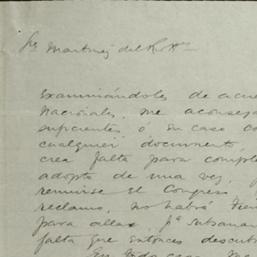 Sres Martinez del Rio Hnos
Examinándoles de acue
Nacionales, me aconseja
suficientes ó, en caso co
cualquier documento,
crea falta para comple
adopte de una vez,
remitirse el Congreso
reclamo, no habrá tie
para allas, pa subsanar
falta que entonces descub
En todo caso, me